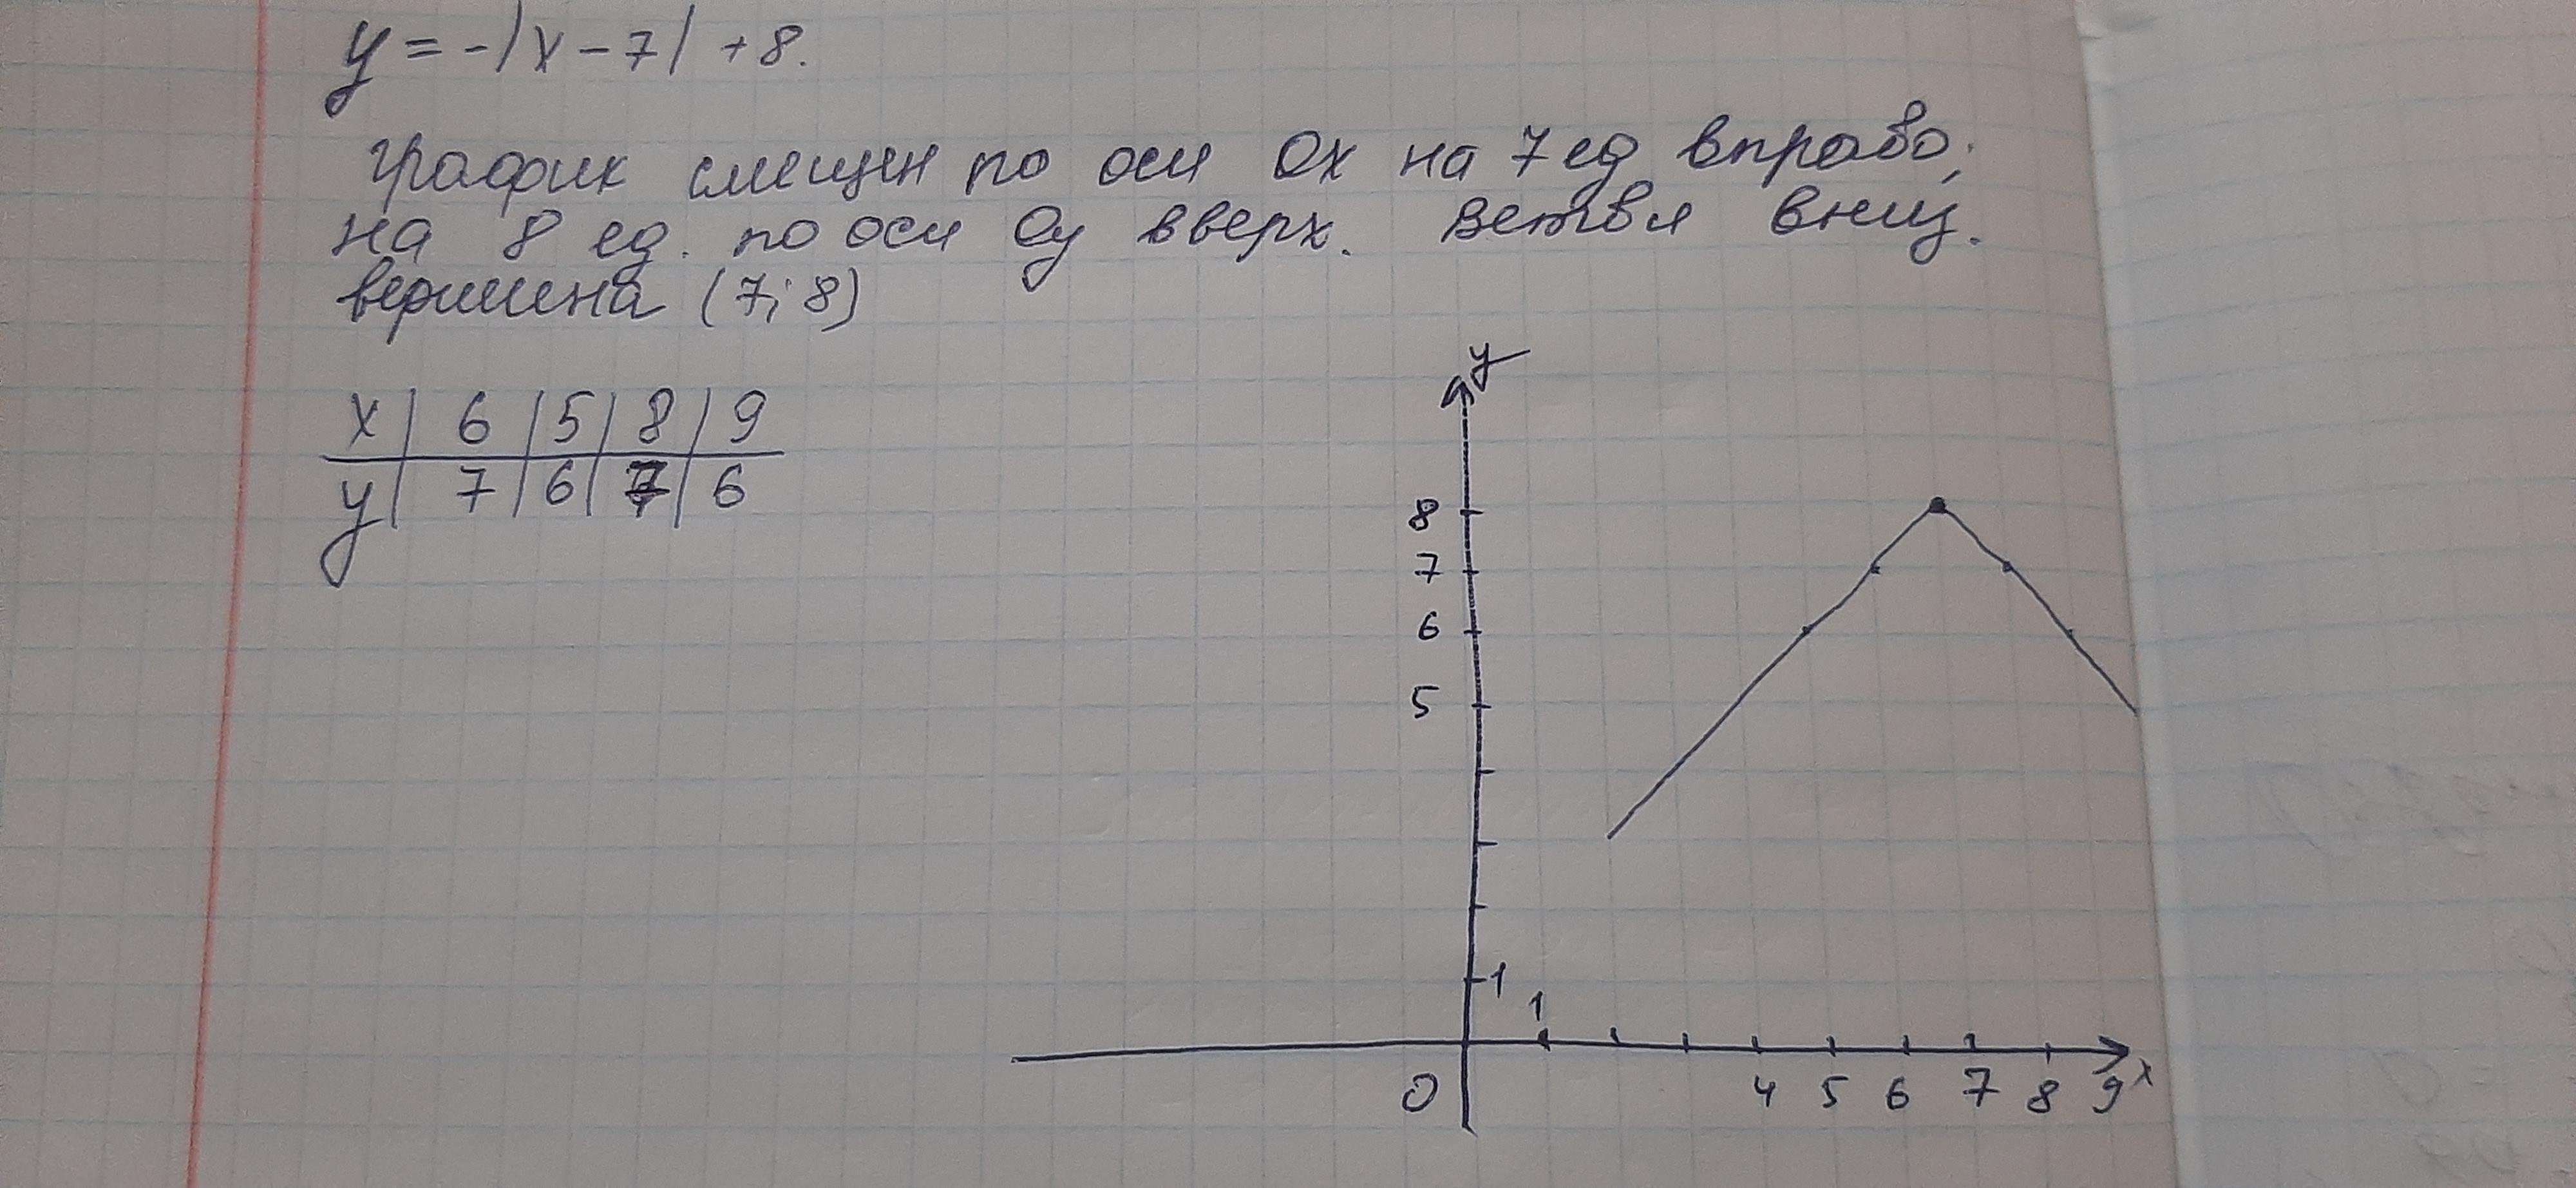 y = -|x - 7| + 8.
График смещен по оси Ox на 7 ед вправо;
на 8 ед. по оси Oy вверх. Ветви вниз.
вершина (7; 8)
x | 6 | 5 | 8 | 9
y | 7 | 6 | 7 | 6
y
8
7
6
5
1
1
0
4 5 6 7 8 9 x